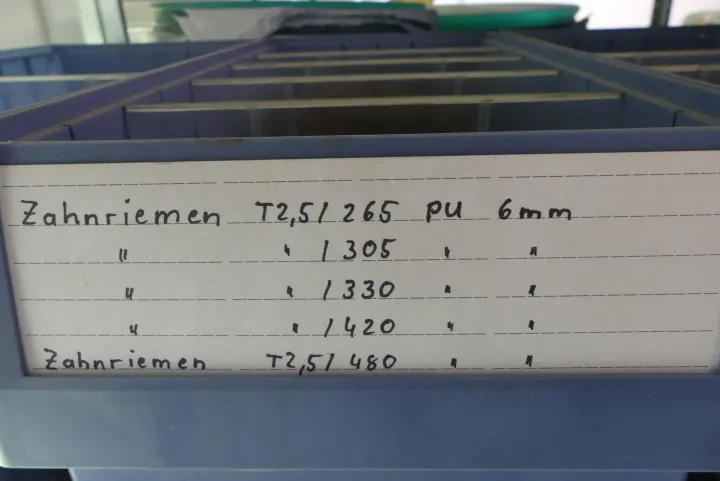 Zahnriemen T2,5/ 265 PU 6mm
" " / 305 " "
" " / 330 " "
" " / 420 " "
Zahnriemen T2,5/ 480 " "